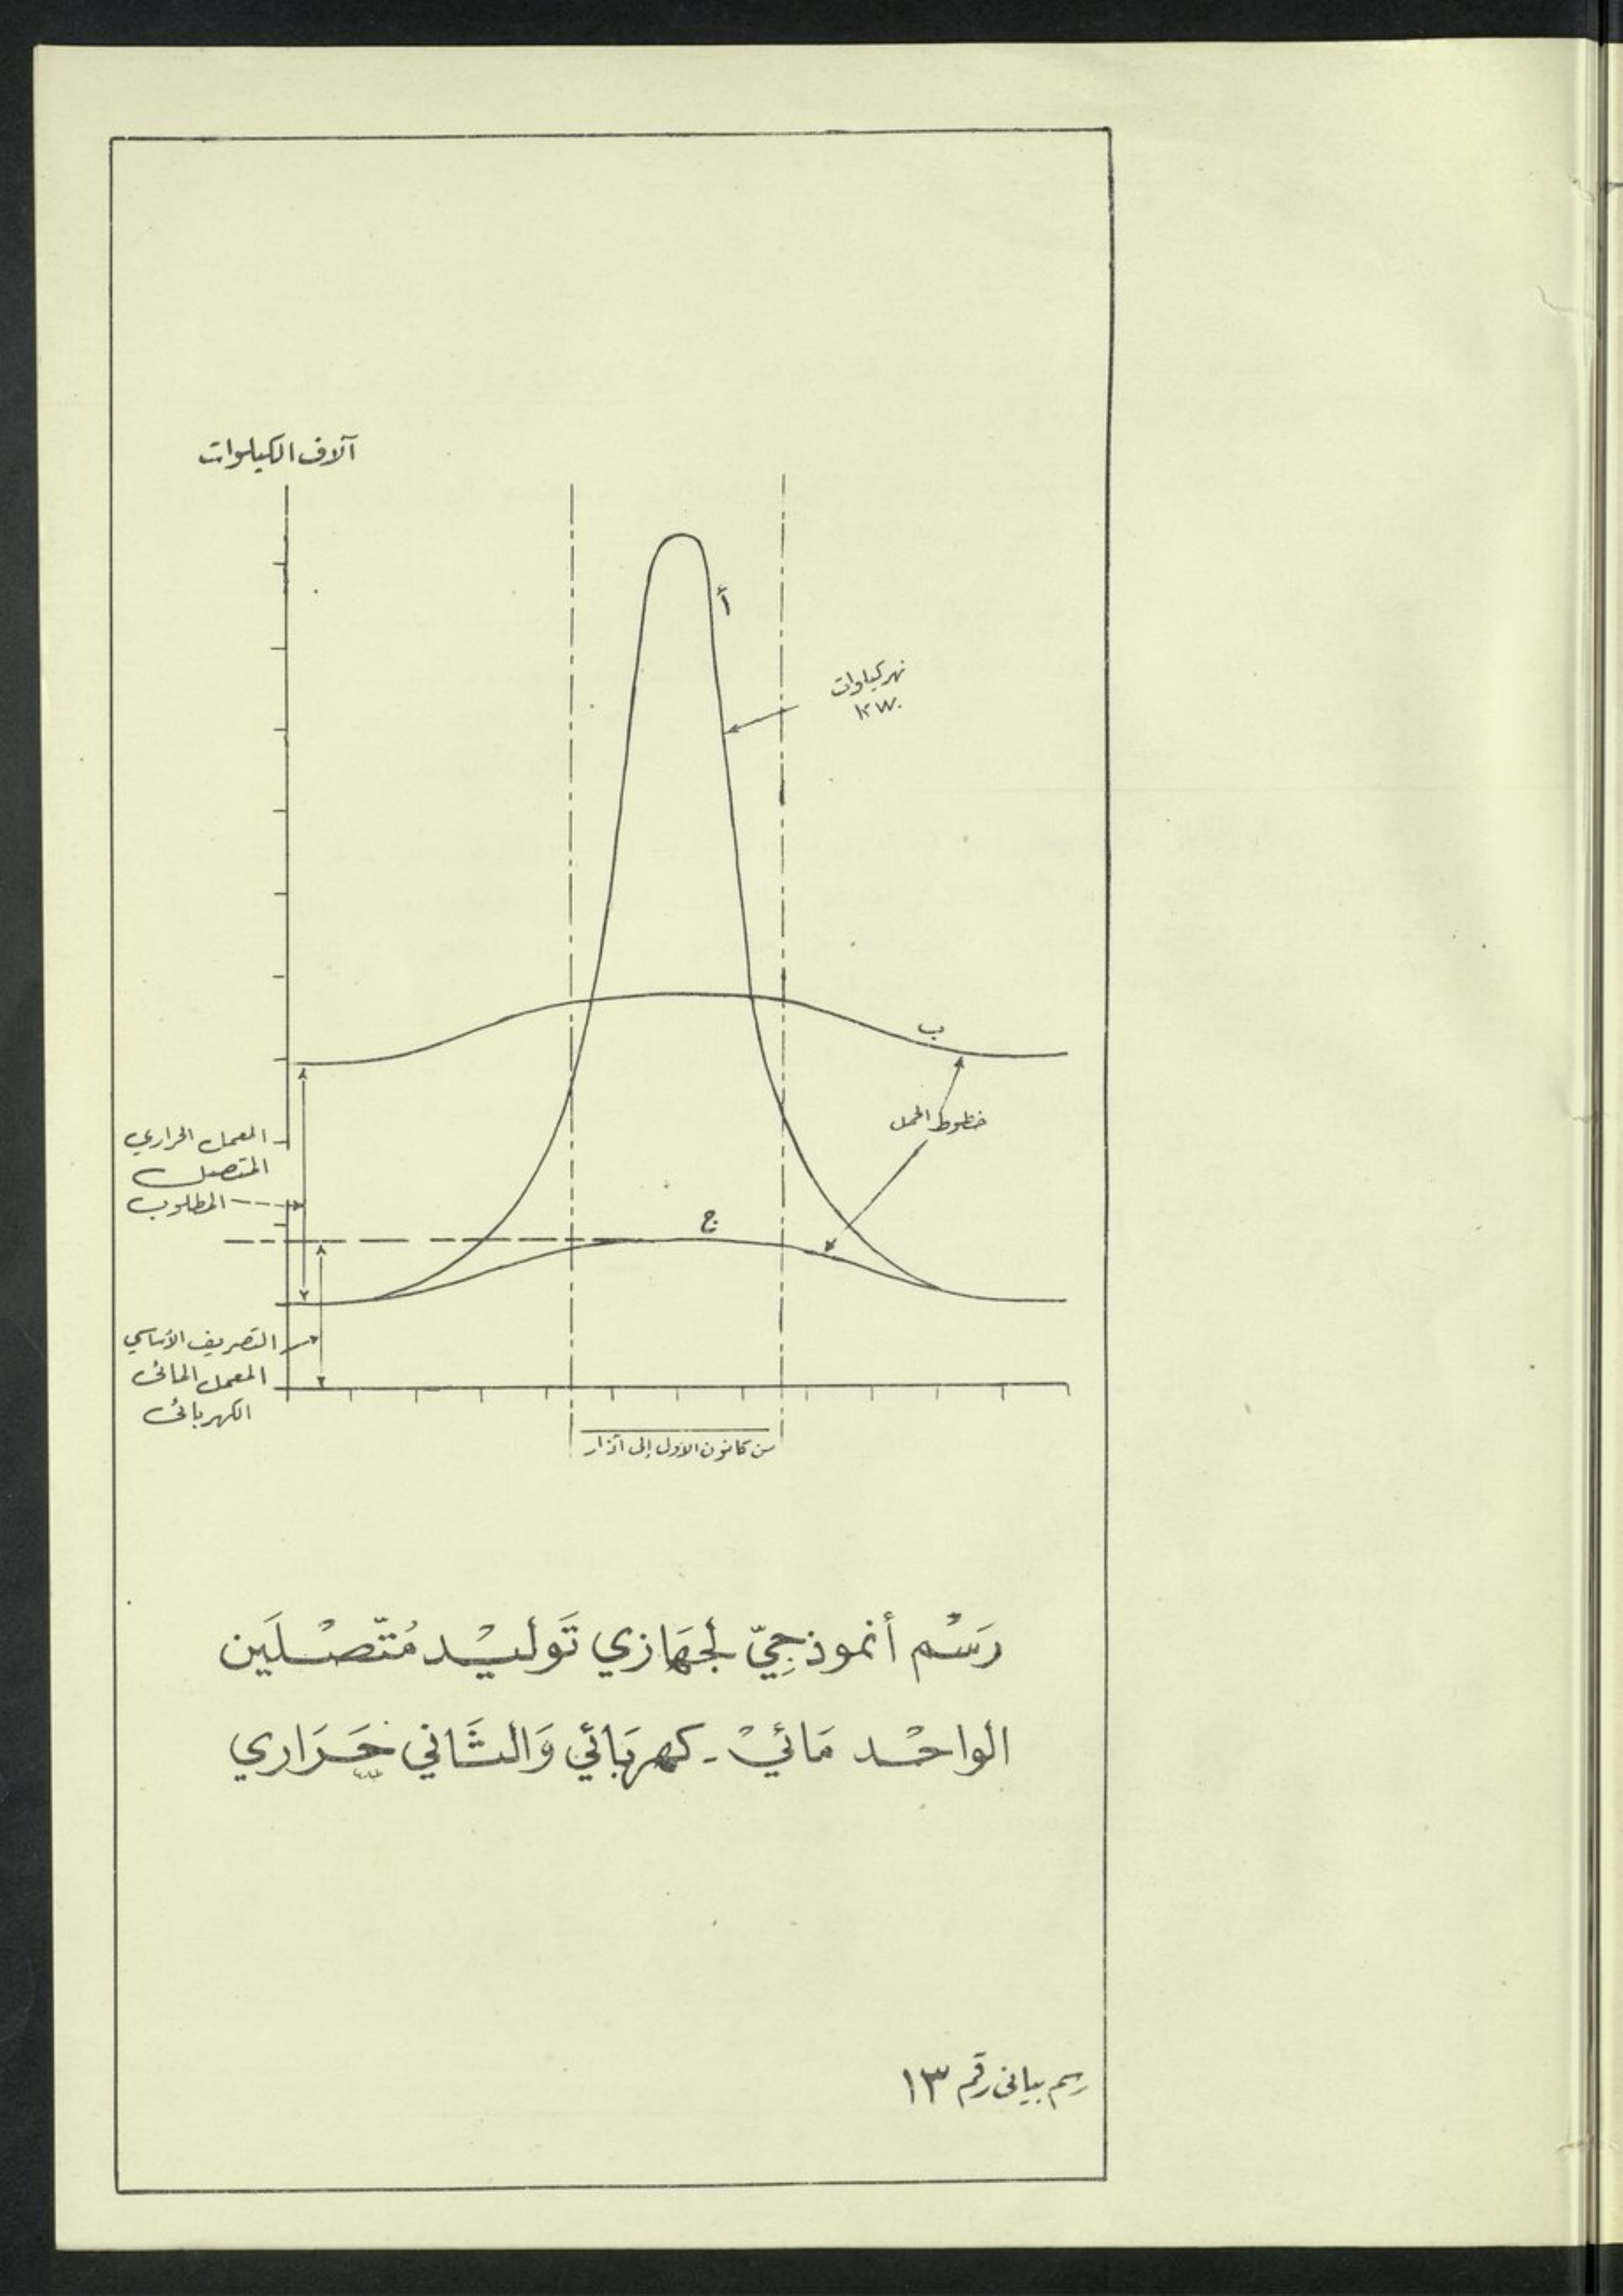 آلاف الكيلوات
أ
نهر كيلوات
KW.
ب
خطوط الحمل
المعمل الحراري
المتصل
المطلوب
ج
التصريف الأساسي
المعمل المائي
الكهربائي
من كانون الاول إلى آذار
رَسْم أنموذجِيّ لجهَازي تَوليْد مُتّصْلَين
الواحْد مَائيْ - كهربَائي وَالثَاني حَرَاري
رسم بياني رقم ١٣